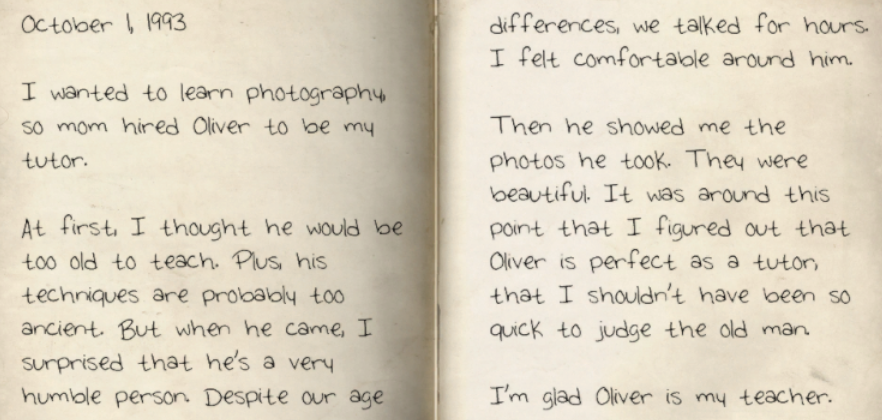 October 1, 1993
I wanted to learn photography,
so mom hired Oliver to be my
tutor.
At first, I thought he would be
too old to teach. Plus, his
techniques are probably too
ancient. But when he came, I
surprised that he's a very
humble person. Despite our age
differences, we talked for hours.
I felt comfortable around him.
Then he showed me the
photos he took. They were
beautiful. It was around this
point that I figured out that
Oliver is perfect as a tutor,
that I shouldn't have been so
quick to judge the old man.
I'm glad Oliver is my teacher.